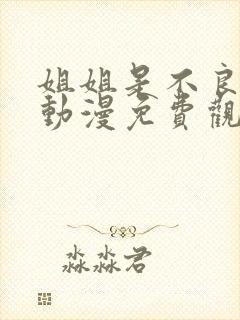 姐姐是不良
動漫免費觀
淼淼君